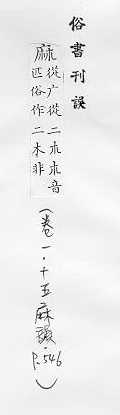 俗書刊誤
麻從广從二𣎳𣎳音
匹俗作二木非
(卷一・十五麻韻・P.546)